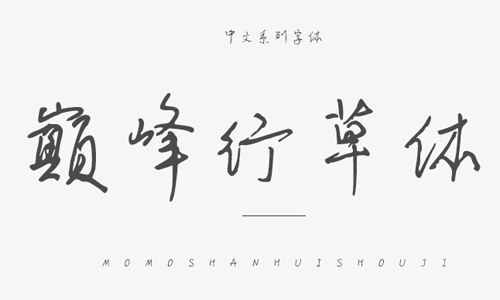 中文系列字体
巅峰行草体
MOMOSHANHUISHOUJI